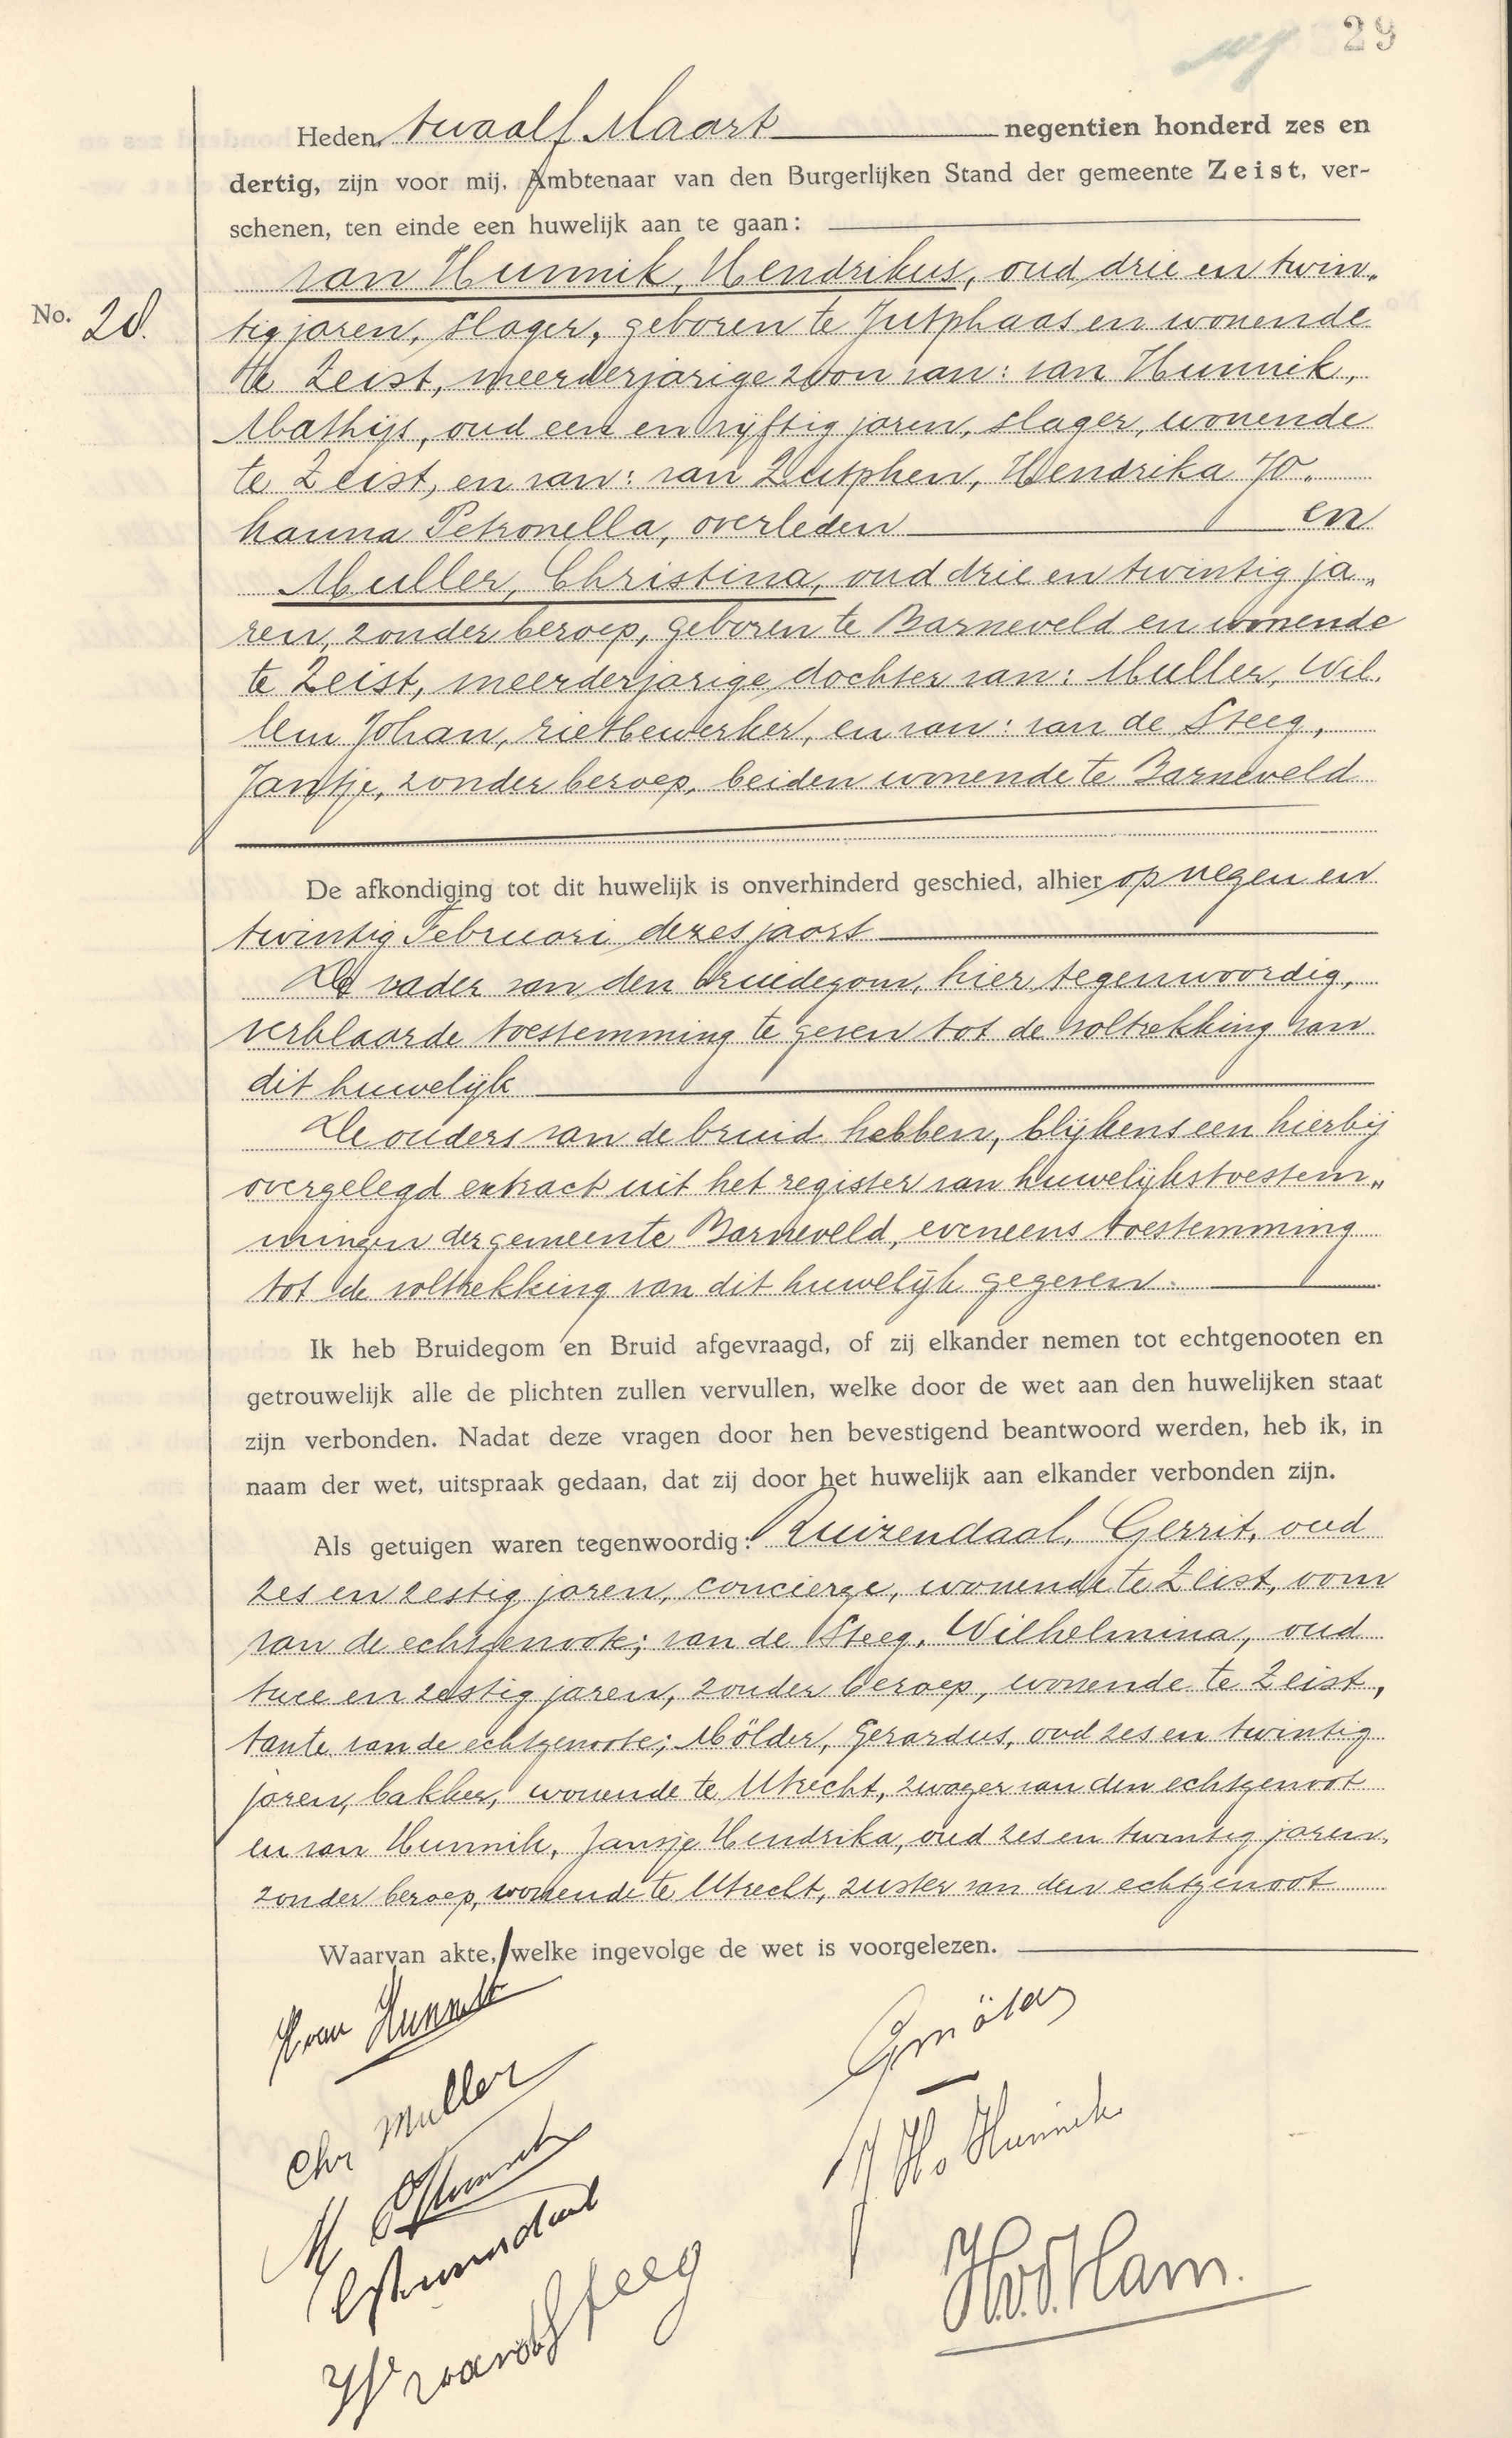 29
Heden, twaalf Maart negentien honderd zes en
dertig, zijn voor mij, Ambtenaar van den Burgerlijken Stand der gemeente Zeist, ver-
schenen, ten einde een huwelijk aan te gaan:
van Hunnik, Hendrikus, oud drie en twin„
No. 28.
tig jaren, slager, geboren te Jutphaas en wonende
te Zeist, meerderjarige zoon van: van Hunnik,
Mathijs, oud een en vijftig jaren, slager, wonende
te Zeist, en van: van Zutphen, Hendrika Jo„
hanna Petronella, overleden en
Muller, Christina, oud drie en twintig ja„
ren, zonder beroep, geboren te Barneveld en wonende
te Zeist, meerderjarige dochter van: Muller, Wil„
lem Johan, rietbewerker, en van: van de Steeg,
Jantje, zonder beroep, beiden wonende te Barneveld
De afkondiging tot dit huwelijk is onverhinderd geschied, alhier op negen en
twintig Februari dezes jaars
De vader van den bruidegom, hier tegenwoordig,
verklaarde toestemming te geven tot de voltrekking van
dit huwelijk
De ouders van de bruid hebben, blijkens een hierbij
overgelegd extract uit het register van huwelijkstoestem„
mingen der gemeente Barneveld, eveneens toestemming
tot de voltrekking van dit huwelijk gegeven.
Ik heb Bruidegom en Bruid afgevraagd, of zij elkander nemen tot echtgenooten en
getrouwelijk alle de plichten zullen vervullen, welke door de wet aan den huwelijken staat
zijn verbonden. Nadat deze vragen door hen bevestigend beantwoord werden, heb ik, in
naam der wet, uitspraak gedaan, dat zij door het huwelijk aan elkander verbonden zijn.
Als getuigen waren tegenwoordig: Ruizendaal, Gerrit, oud
zes en zestig jaren, concierge, wonende te Zeist, oom
van de echtgenoote; van de Steeg, Wilhelmina, oud
twee en zestig jaren, zonder beroep, wonende te Zeist,
tante van de echtgenoote; Mölder, Gerardus, oud zes en twintig
jaren, bakker, wonende te Utrecht, zwager van den echtgenoot
en van Hunnik, Jansje Hendrika, oud zes en twintig jaren,
zonder beroep, wonende te Utrecht, zuster van den echtgenoot
Waarvan akte, welke ingevolge de wet is voorgelezen.
H van Hunnik
Chr Muller